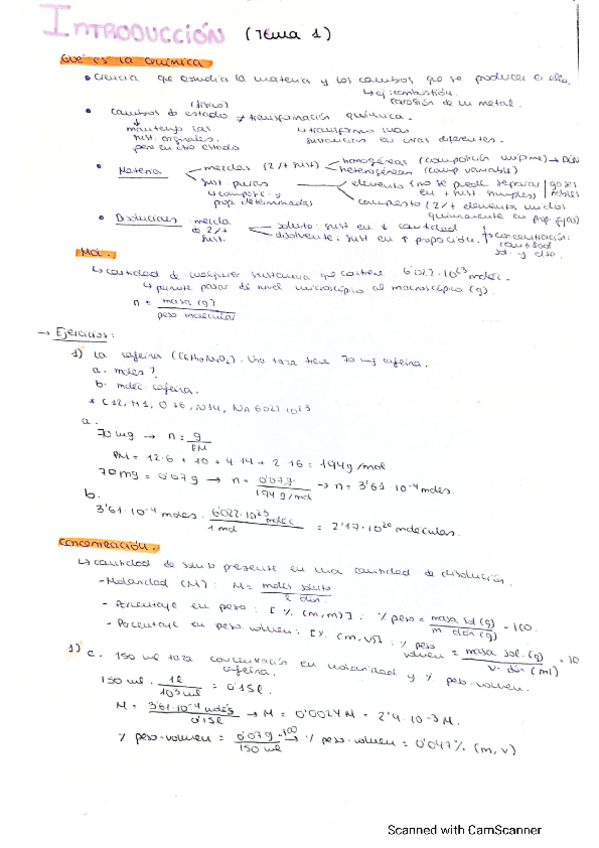 INTRODUCCIÓN (Tema 1)
Qué es la química
• Ciencia que estudia la materia y los cambios que se producen a ella.
↳ ej: combustión.
corrosión de un metal.
(físico)
• cambios de estado ≠ transformación química.
↓ mantengo las ↳ transformo unas
sust. originales. sustancias en otras diferentes.
pero en otro estado
• Materia mezclas (2/+ sust) homogéneas (composición uniforme) → DIÓN
heterogéneas (comp variable)
sust puras elemento (no se puede separar en + sust. simples) gases nobles
↳ composic. y prop. determinadas compuesto (2/+ elementos unidos químicamente en prop. fijas)
• Disoluciones: mezcla de 2/+ sust. soluto: sust en ↓ cantidad
disolvente: sust en ↑ proporción. concentración: cantidad sol. y diso.
Mol.
↳ cantidad de cualquier sustancia que contiene 6'022·10²³ moléc.
↳ permite pasar de nivel microscópico al macroscópico (g).
n = masa (g) / peso molecular
→ Ejercicios:
1) La cafeína (C₆H₁₀N₄O₂). Una taza tiene 70 mg cafeína.
a. moles?
b. moléc. cafeína.
* C 12, H 1, O 16, N 14, NA 6022·10²³
a.
70 mg → n = g / PM
PM = 12·6 + 10 + 4·14 + 2·16 = 194 g/mol
70 mg = 0'07 g → n = 0'07 g / 194 g/mol → n = 3'61·10⁻⁴ moles.
b.
3'61·10⁻⁴ moles. 6'022·10²³ moléc / 1 mol = 2'17·10²⁰ moléculas.
Concentración.
↳ cantidad de soluto presente en una cantidad de disolución.
- Molaridad (M): M = moles soluto / L disn.
- Porcentaje en peso: [% (m,m)]: % peso = masa sol (g) / m disn (g) · 100.
- Porcentaje en peso. volumen: [% (m,v)]: % peso volumen = masa sol. (g) / v. disn (ml) · 10
1) c. 150 ml taza. concentración en molaridad y % peso-volumen.
cafeína.
150 ml · 1 l / 10³ ml = 0'15 l.
M = 3'61·10⁻⁴ moles / 0'15 l → M = 0'0024 M = 2'4·10⁻³ M.
% peso-volumen = 0'07 g / 150 ml ·100 → % peso-volumen = 0'047% (m,v)
Scanned with CamScanner